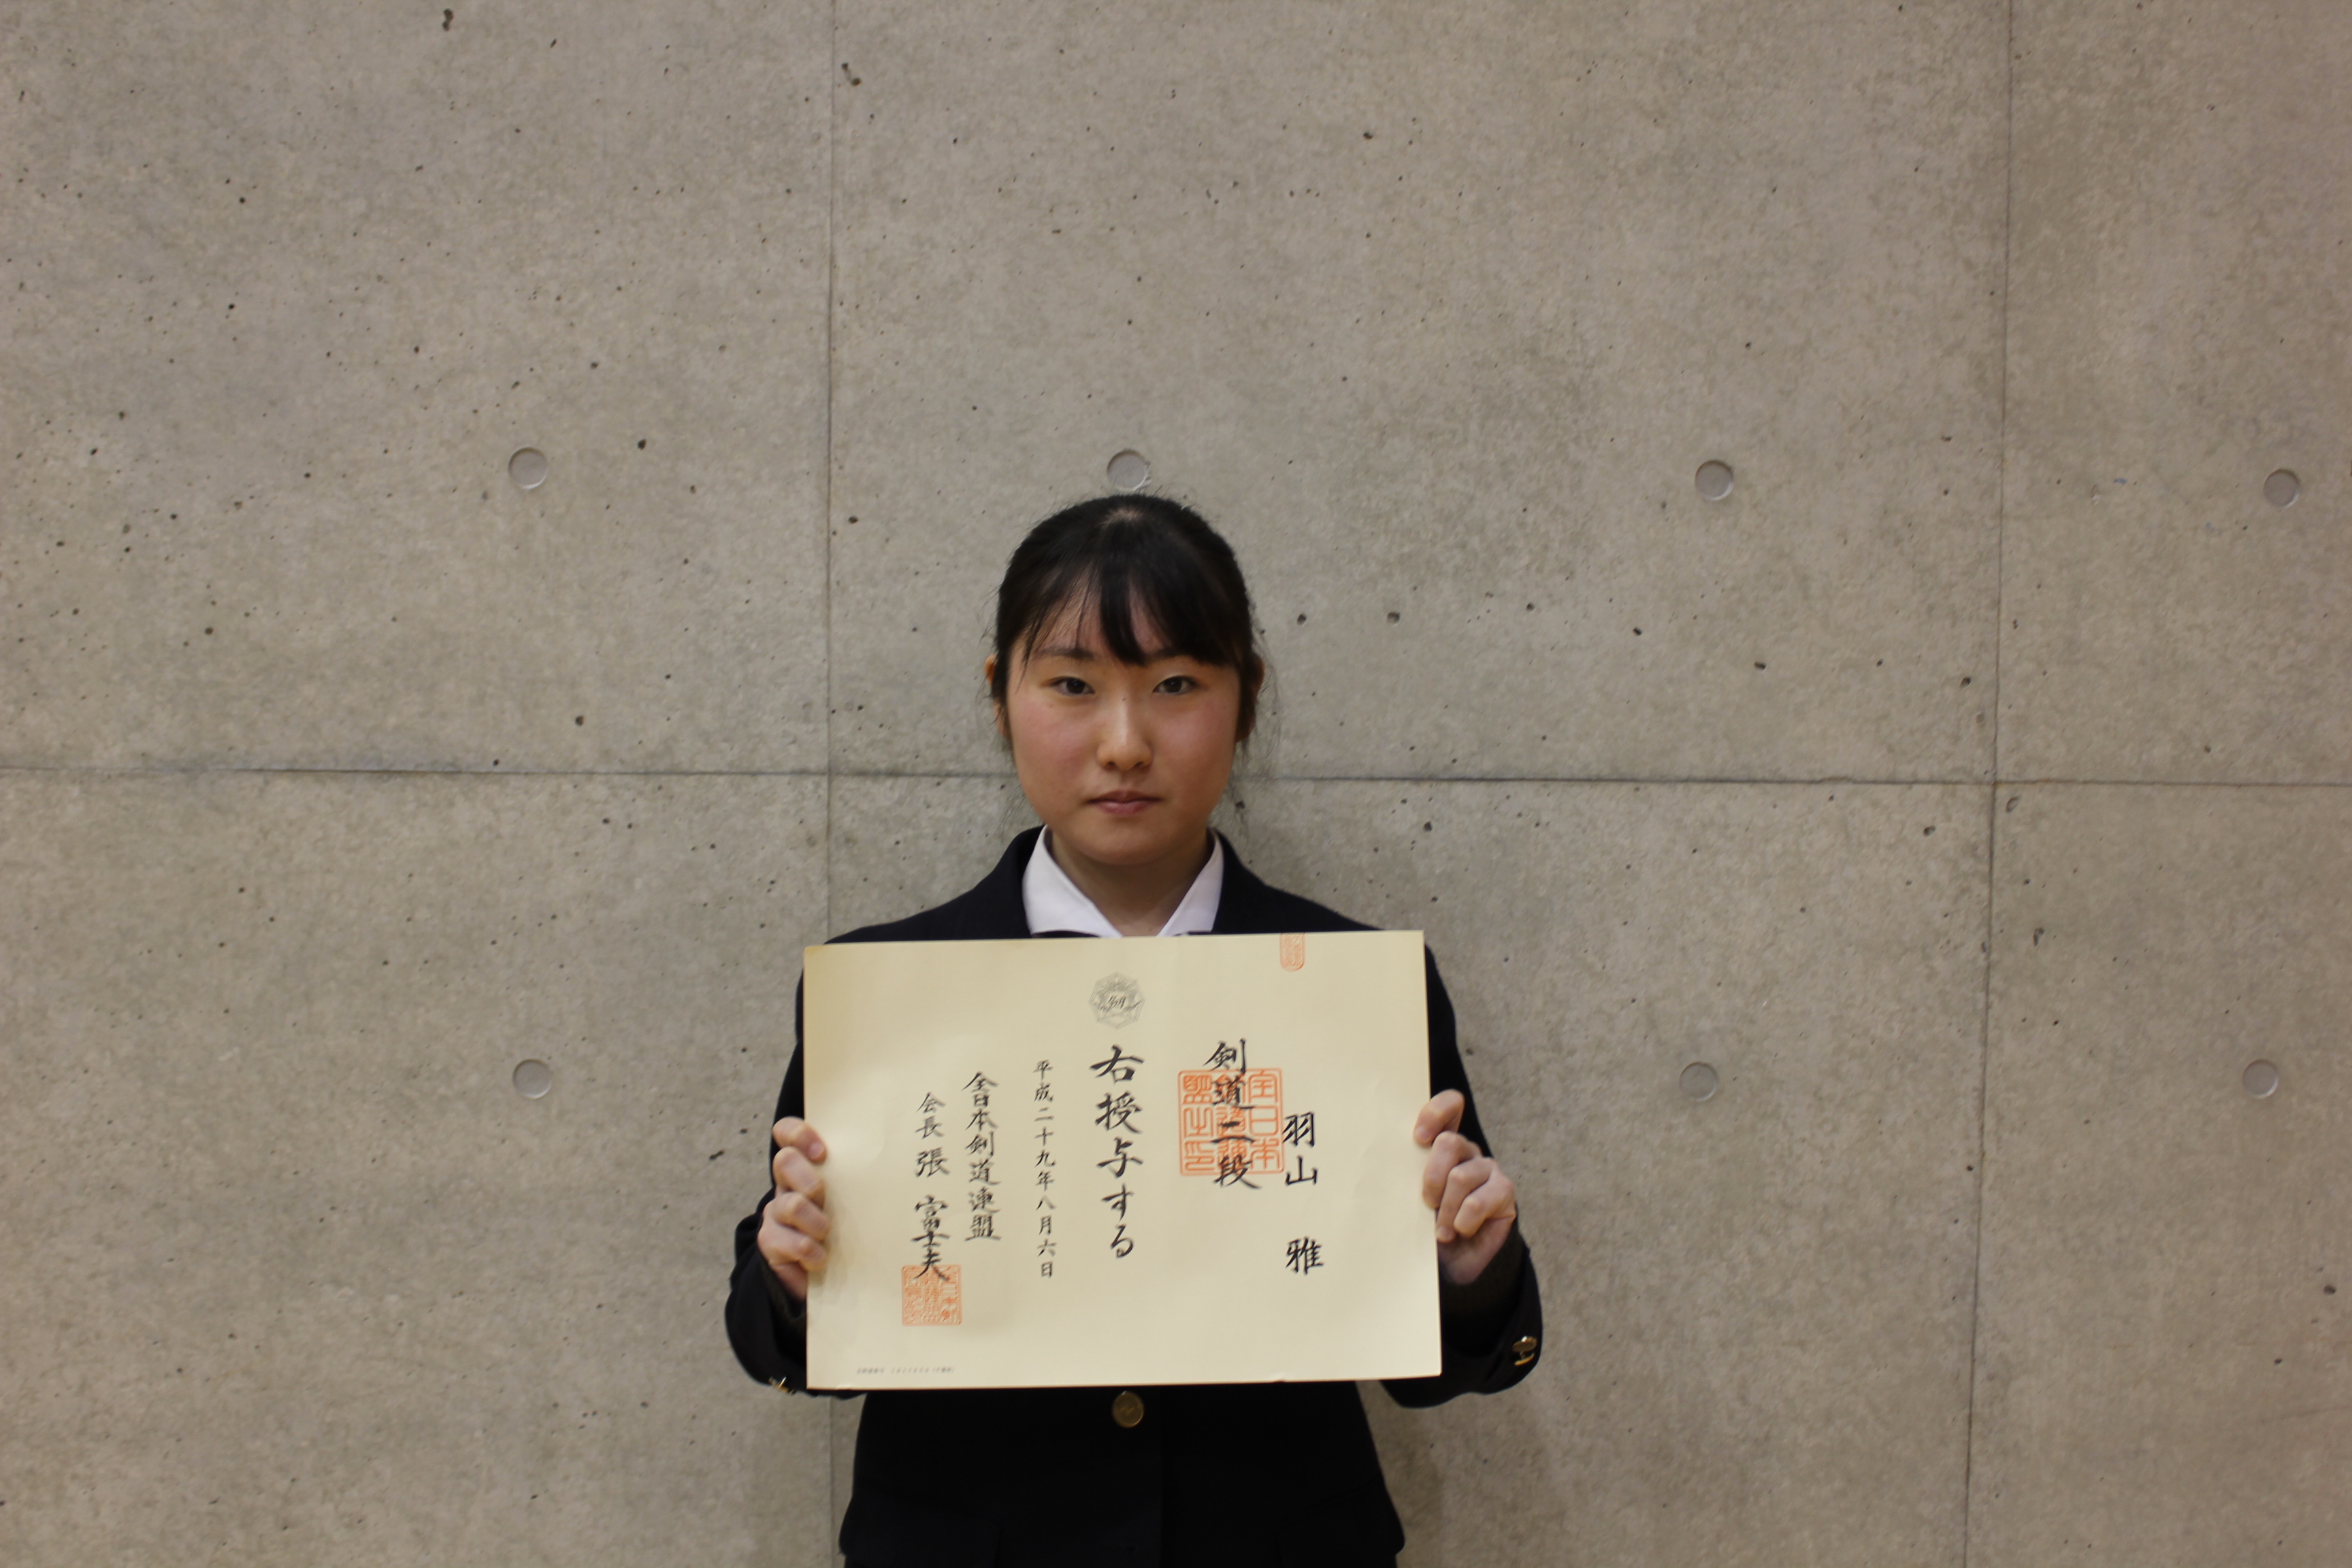 羽山 雅
剣道二段
右授与する
平成二十九年八月六日
全日本剣道連盟
会長 張 富士夫